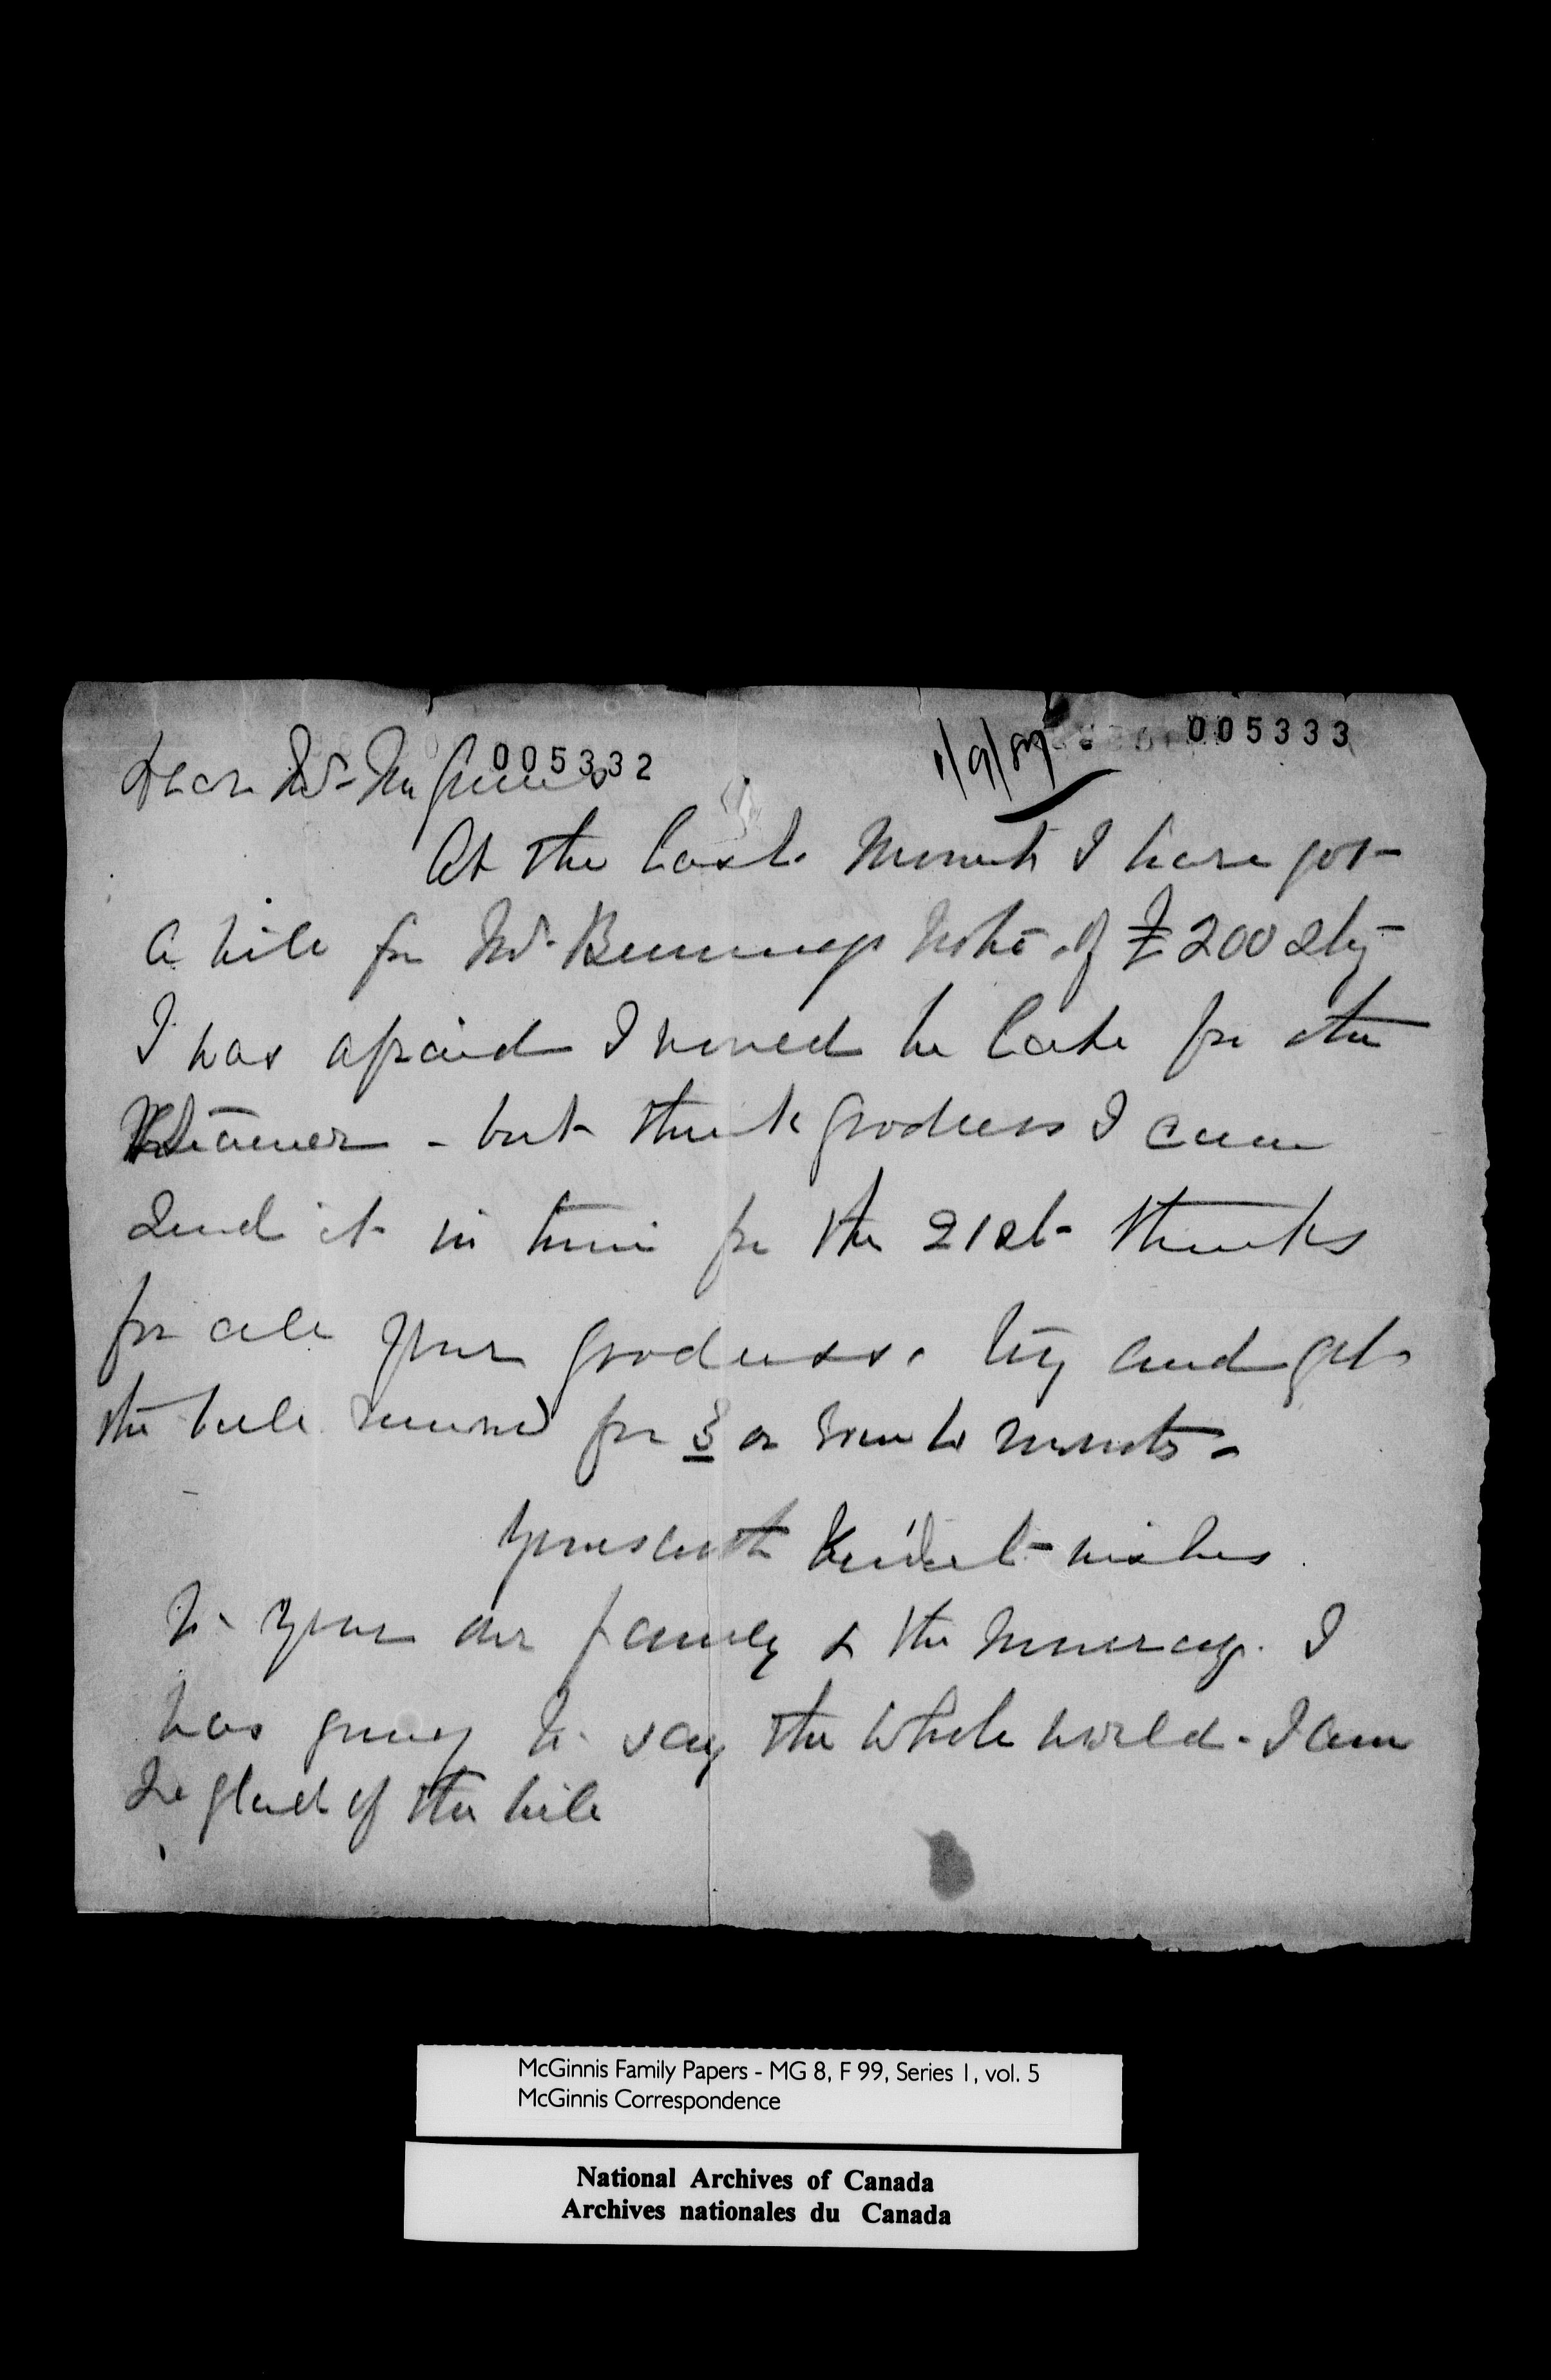 005332
1/9/89 005333
Dear Mr. McGinnis
At the last minute I have got
a bill for Mr. Bennings note of £200 Stg
I was afraid I would be late for the
Steamer - but thank goodness I can
send it in time for the 21st thanks
for all your goodness. try and get
the bill renewed for 3 or months -
Yours with kindest wishes
to your family & the I
was going to say the whole world. I am
so glad of the bill
McGinnis Family Papers - MG 8, F 99, Series 1, vol. 5
McGinnis Correspondence
National Archives of Canada
Archives nationales du Canada